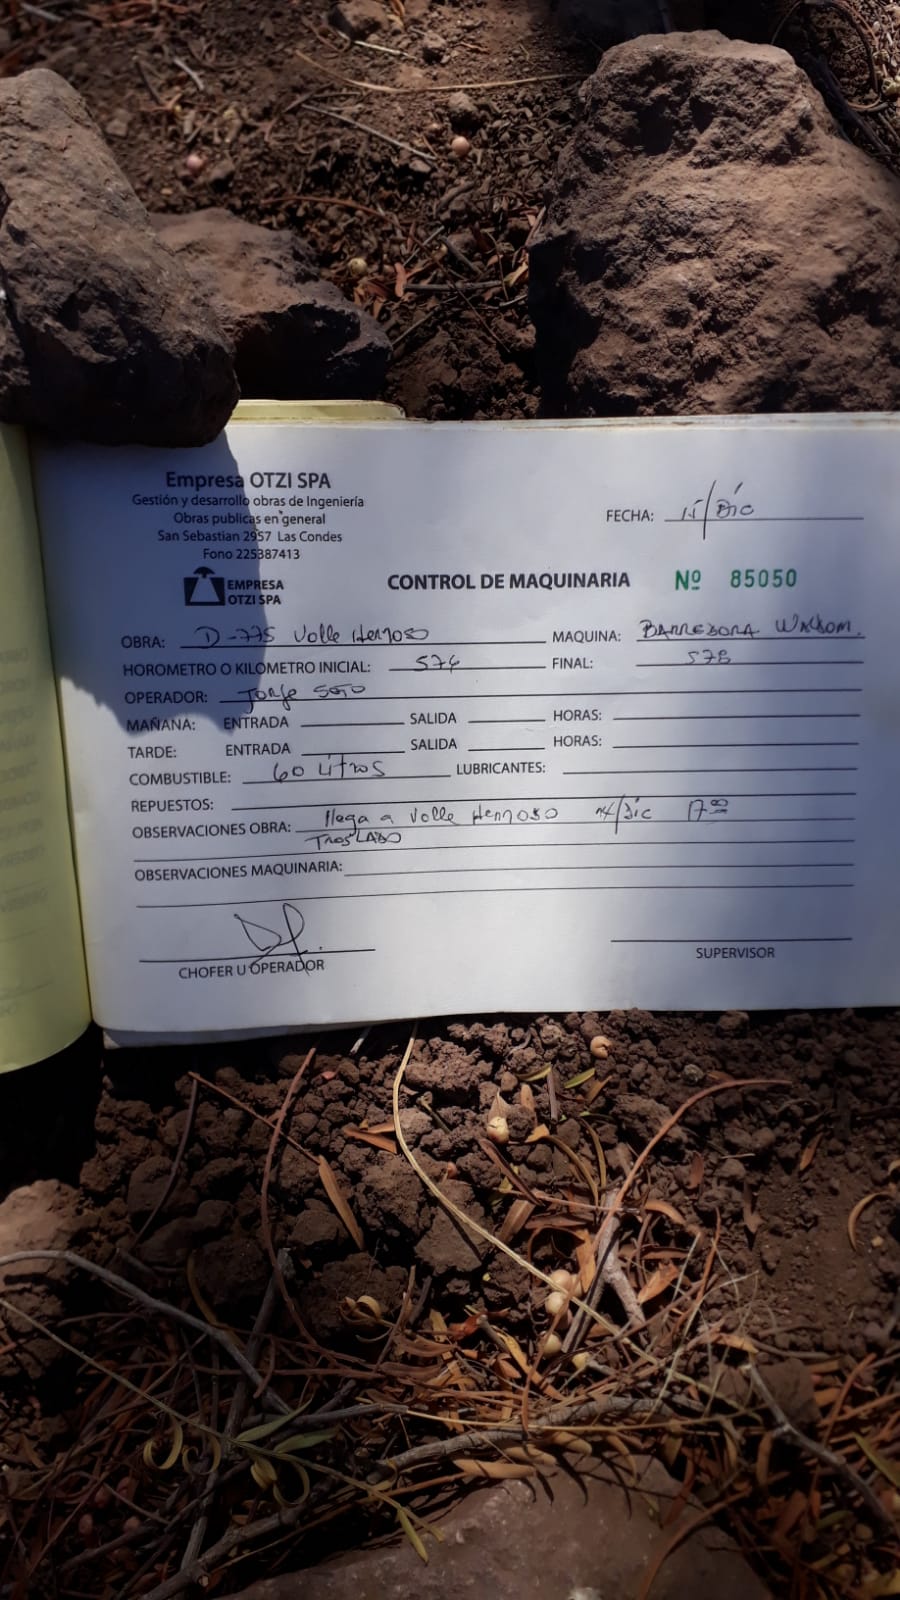 Empresa OTZI SPA
Gestión y desarrollo obras de Ingeniería
Obras publicas en general
San Sebastian 2957 Las Condes
Fono 225387413
EMPRESA
OTZI SPA
FECHA: 15/Dic
CONTROL DE MAQUINARIA Nº 85050
OBRA: D-775 Valle Hermoso MAQUINA: BARREDORA
HOROMETRO O KILOMETRO INICIAL: 574 FINAL: 578
OPERADOR: Jorge Soto
MAÑANA: ENTRADA SALIDA HORAS:
TARDE: ENTRADA SALIDA HORAS:
COMBUSTIBLE: 60 Litros LUBRICANTES:
REPUESTOS:
OBSERVACIONES OBRA: llega a Valle Hermoso 14/Dic 17:00
TrasLADO
OBSERVACIONES MAQUINARIA:
CHOFER U OPERADOR
SUPERVISOR